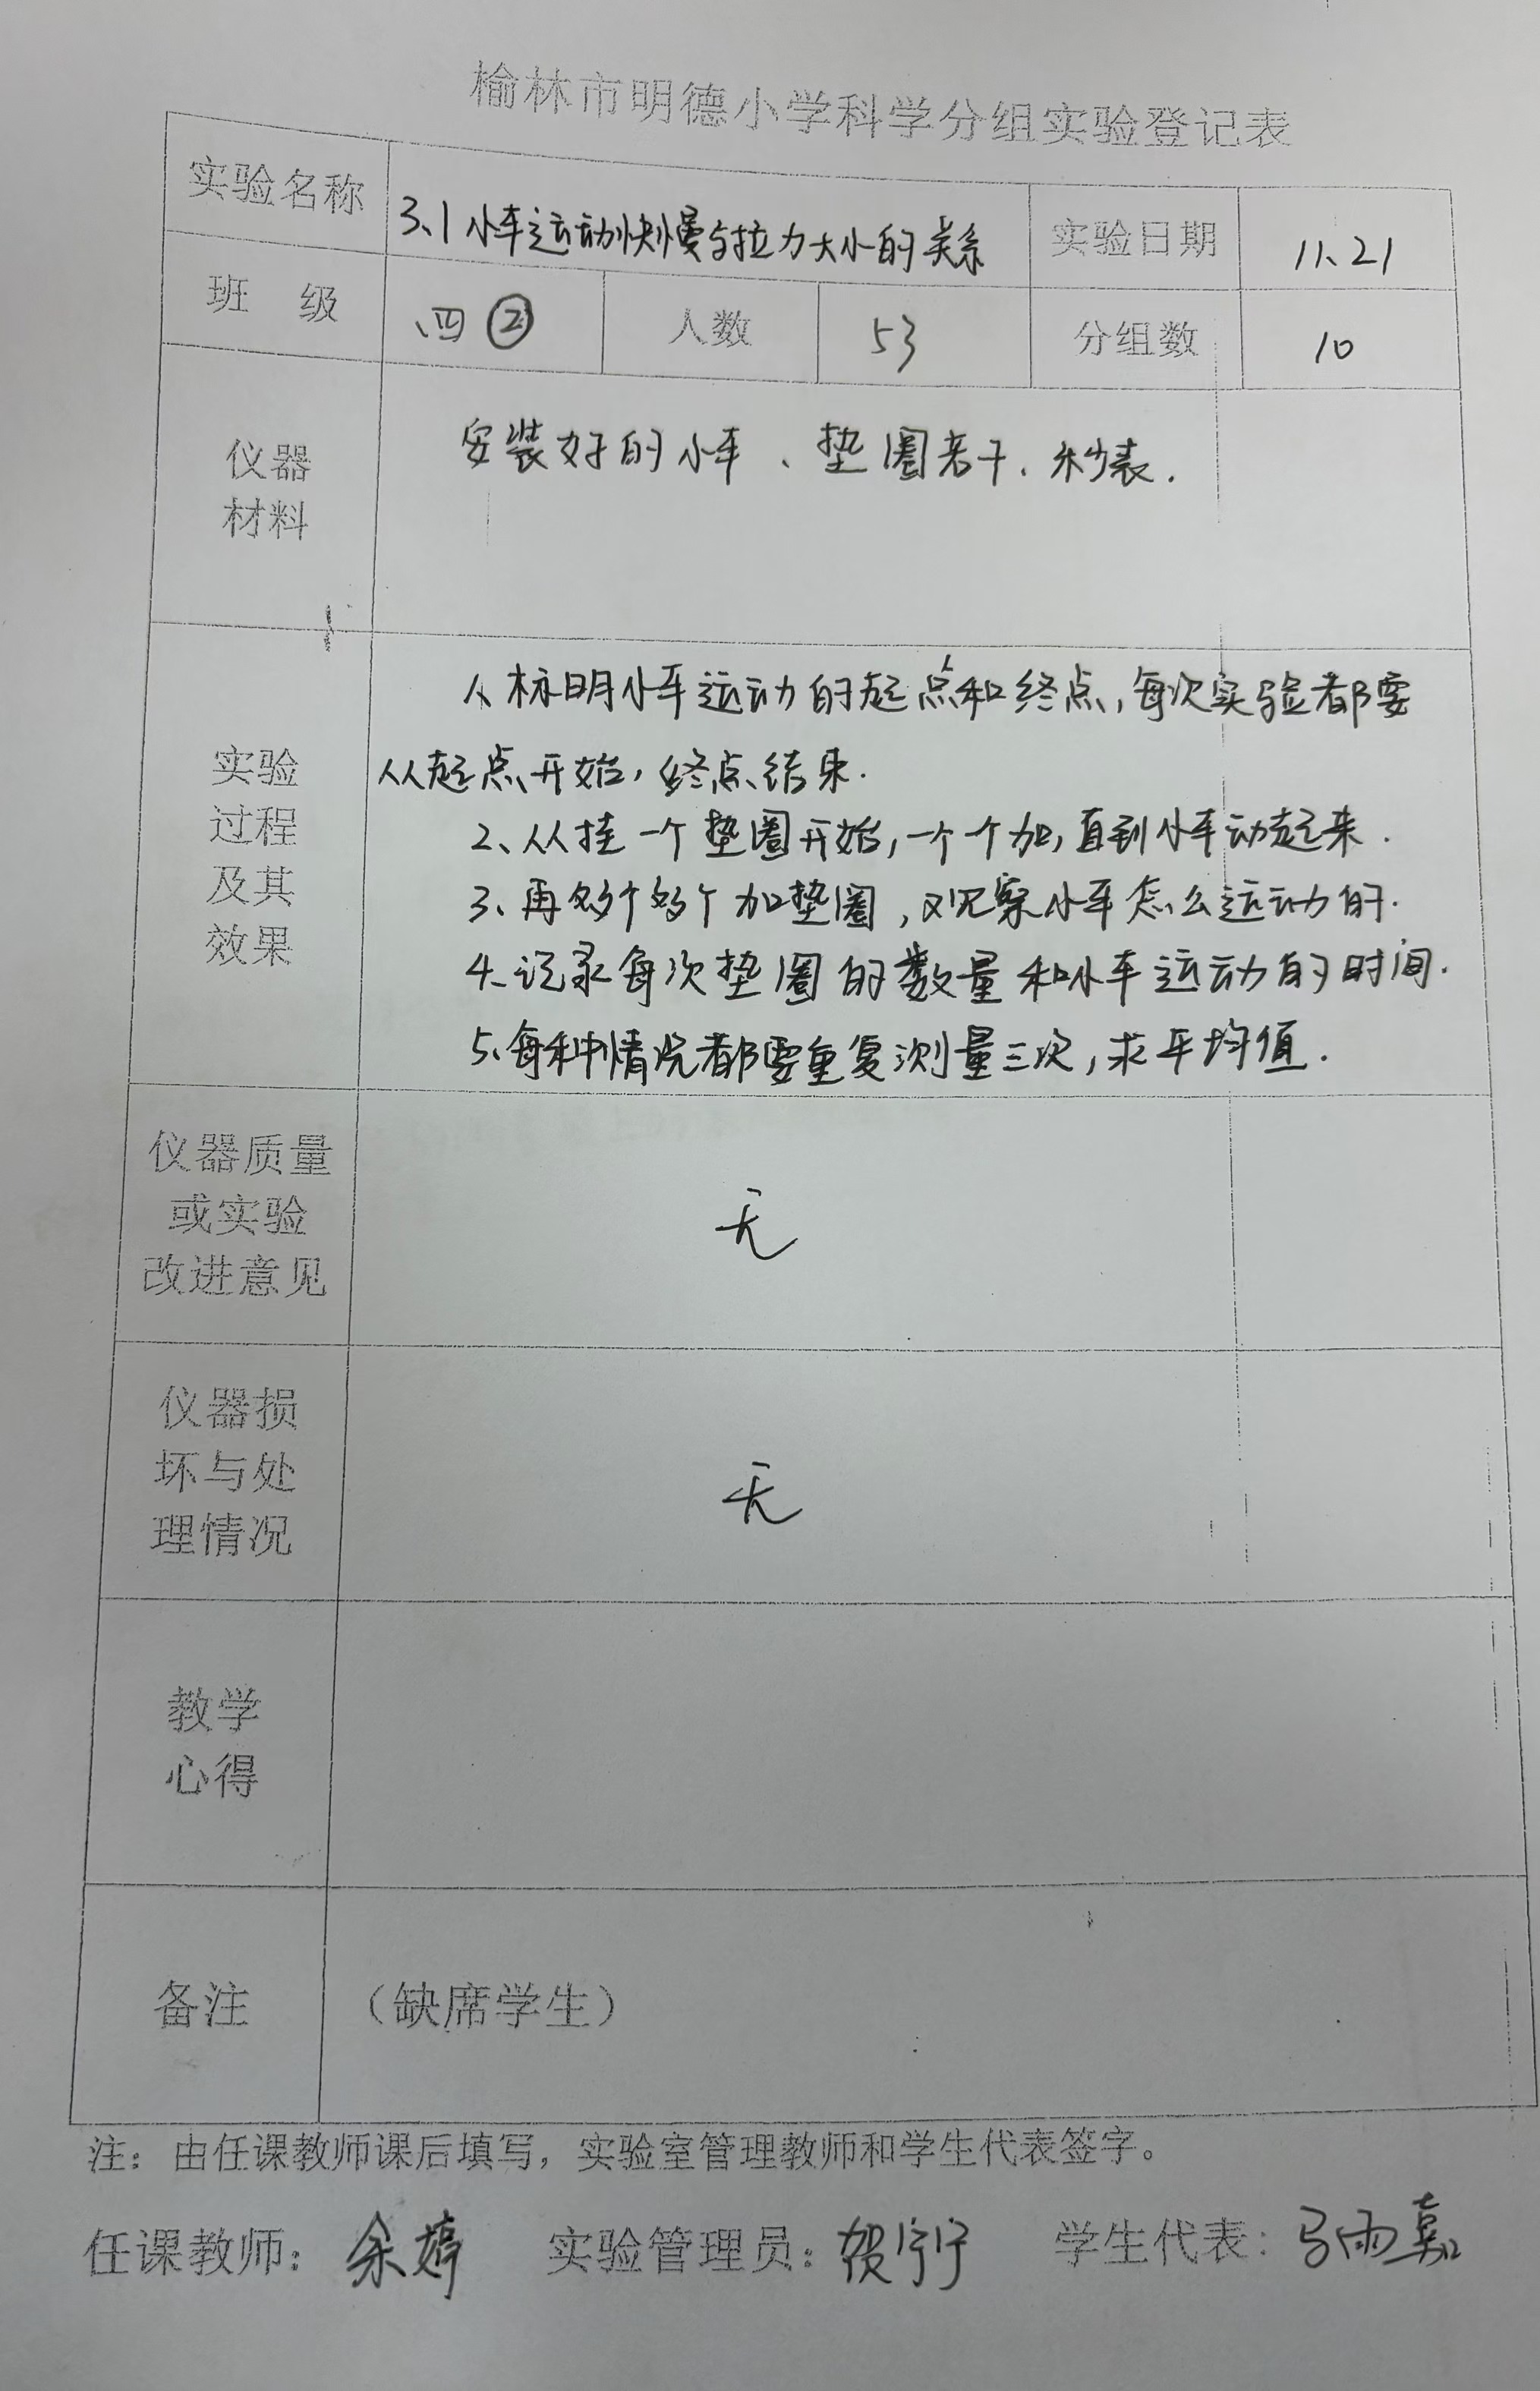 榆林市明德小学科学分组实验登记表
实验名称 3.1 小车运动快慢与拉力大小的关系 实验日期 11.21
班 级 四② 人数 53 分组数 10
仪器
材料
安装好的小车、垫圈若干、秒表.
实验
过程
及其
效果
1、标明小车运动的起点和终点,每次实验都要
从起点开始,终点结束.
2、从挂一个垫圈开始,一个个加,直到小车动起来.
3、再多个多个加垫圈,观察小车怎么运动的.
4、记录每次垫圈的数量和小车运动的时间.
5、每种情况都要重复测量三次,求平均值.
仪器质量
或实验
改进意见
无
仪器损
坏与处
理情况
无
教学
心得
备注 (缺席学生)
注:由任课教师课后填写,实验室管理教师和学生代表签字。
任课教师:余婷 实验管理员:贺宁宁 学生代表:马雨嘉